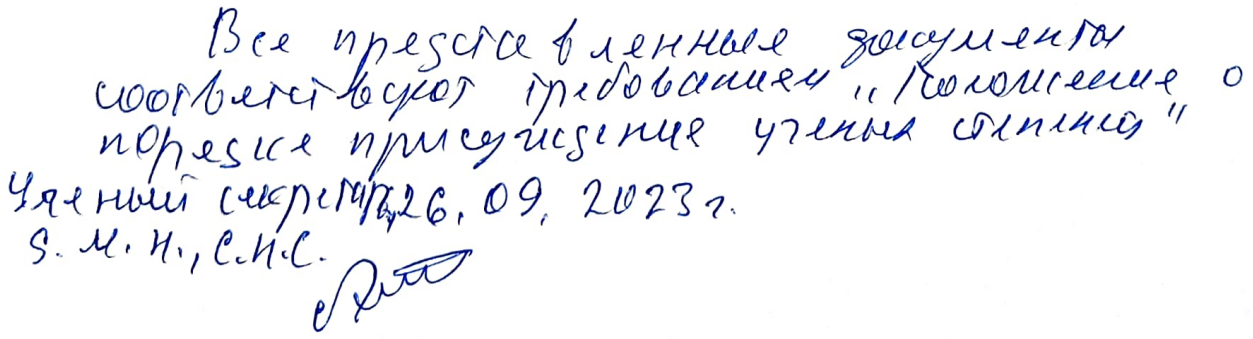 Все представленные документы
соответствуют требованиям „Положение о
порядке присуждения ученых степеней"
Ученый секретарь, 26, 09, 2023 г.
д. м. н., с.н.с.